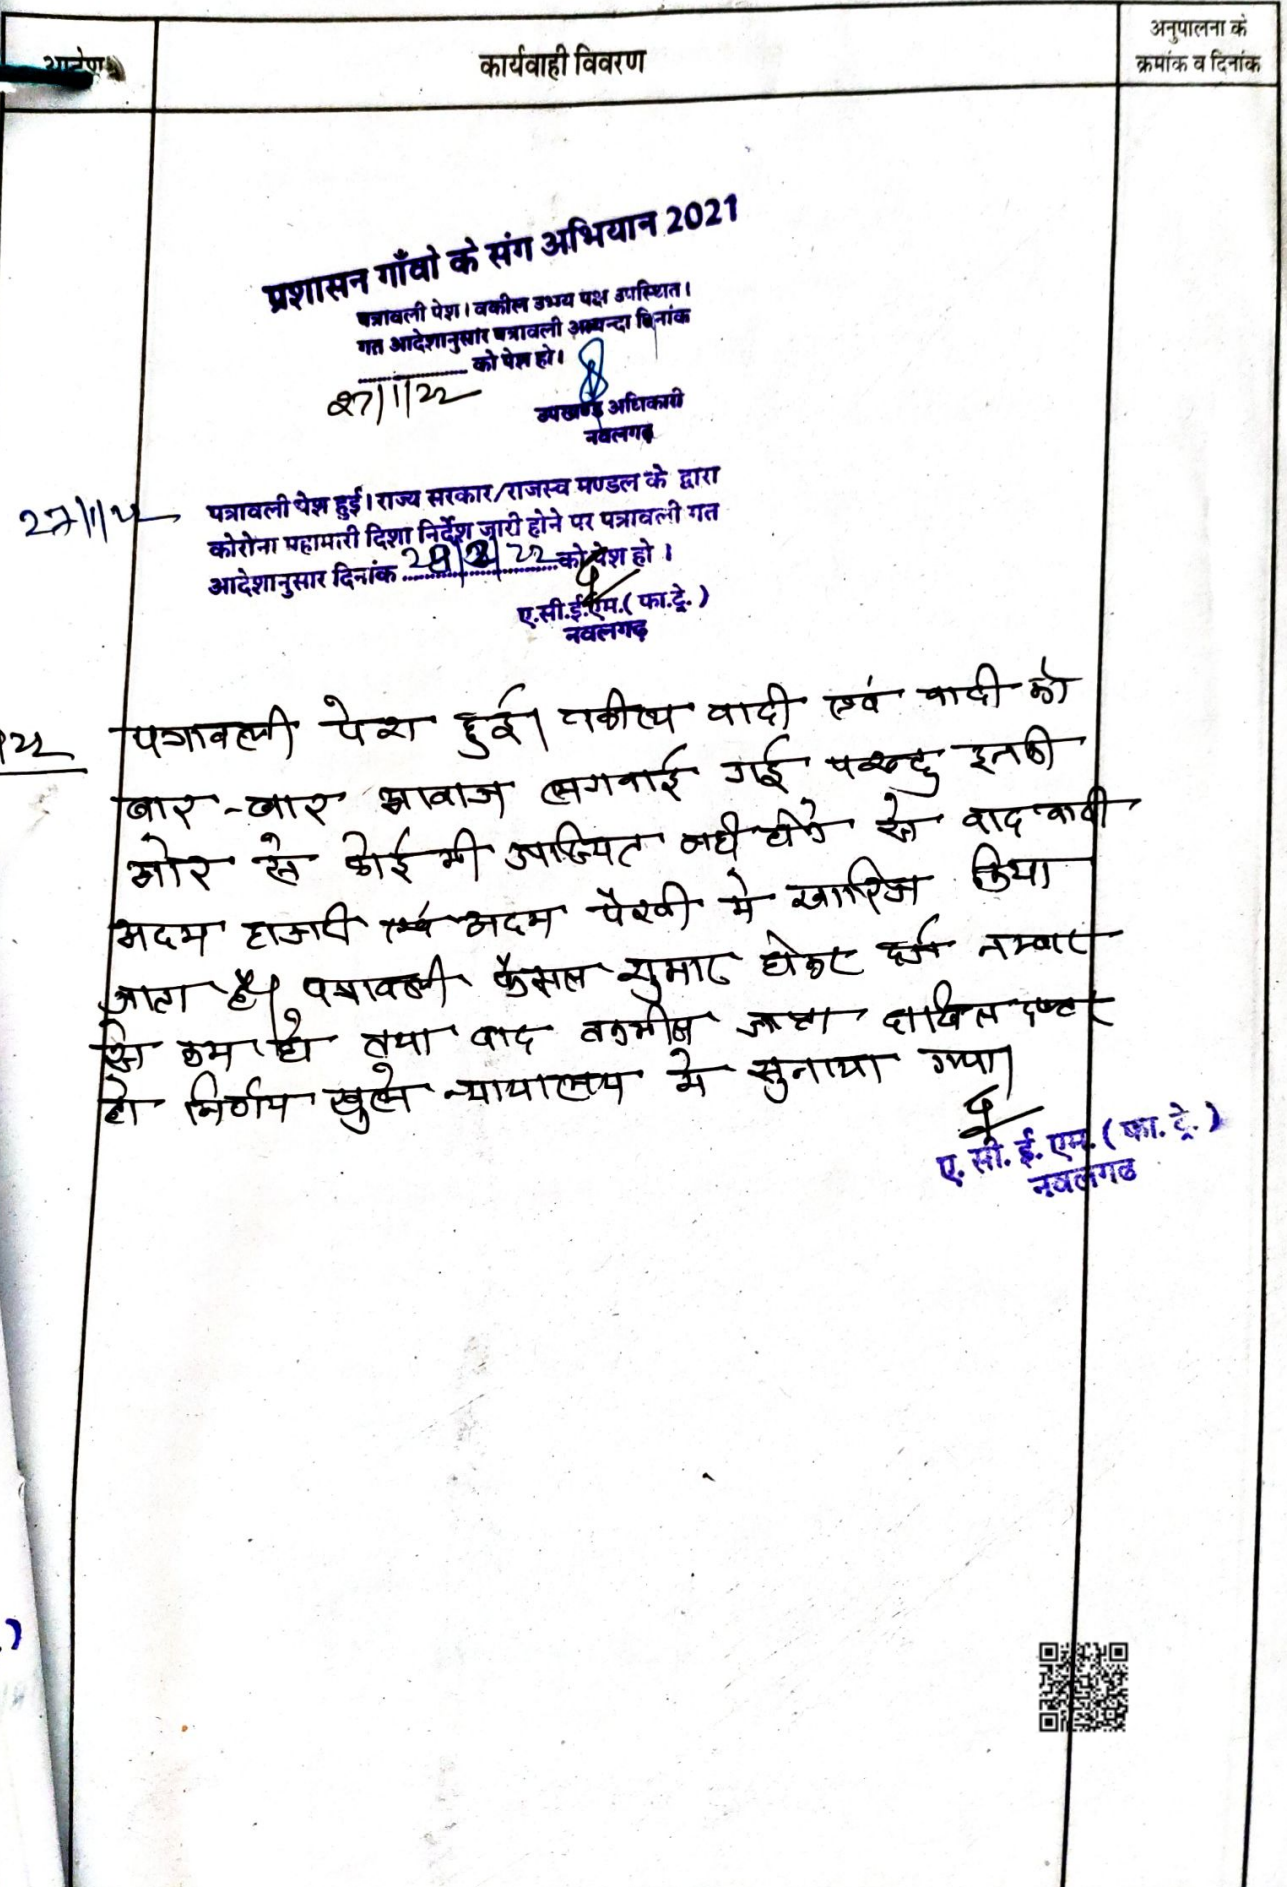 कार्यवाही विवरण
अनुपालना के
क्रमांक व दिनांक
प्रशासन गाँवो के संग अभियान 2021
पत्रावली पेश। वकील उभय पक्ष उपस्थित।
गत आदेशानुसार पत्रावली आयन्दा दिनांक
को पेश हो।
27/1/22
उपखण्ड अधिकारी
नवलगढ़
27/1/22
पत्रावली पेश हुई। राज्य सरकार/राजस्व मण्डल के द्वारा
कोरोना महामारी दिशा निर्देश जारी होने पर पत्रावली गत
आदेशानुसार दिनांक 28/2/22 को पेश हो।
ए.सी.ई.एम.( फा.ट्रे. )
नवलगढ़
पत्रावली पेश हुई। वकील वादी एवं वादी को
बार-बार आवाज लगवाई गई परन्तु इनकी
ओर से कोई भी उपस्थित नही होने से वाद वादी
अदम हाजरी एवं अदम पैरवी मे खारिज किया
जाता है। पत्रावली फैसल शुमार होकर दर्ज नम्बर
से कम हो तथा बाद तकमील जाब्ता दाखिल दफ्तर
हो निर्णय खुले न्यायालय मे सुनाया गया।
ए. सी. ई. एम. ( फा. ट्रे. )
नवलगढ